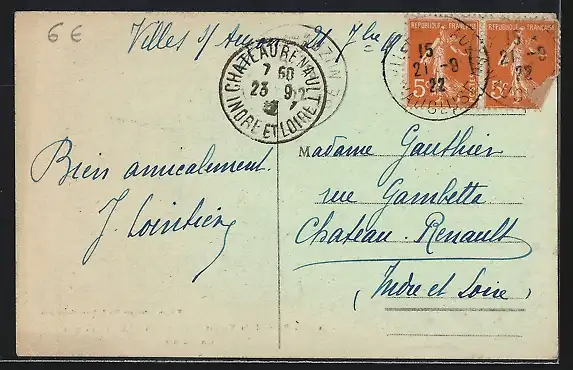 6 €
Villes s/ Auzon 21 7bre
CHATEAURENAULT
7 60
23 9 22
INDRE ET LOIRE
REPUBLIQUE FRANÇAISE
REPUBLIQUE FRANÇAISE
15
21 -9
22
21 -9
22
5c
VAUCLUSE
Bien amicalement
Madame Gauthier
rue Gambetta
Chateau-Renault
(Indre et Loire)